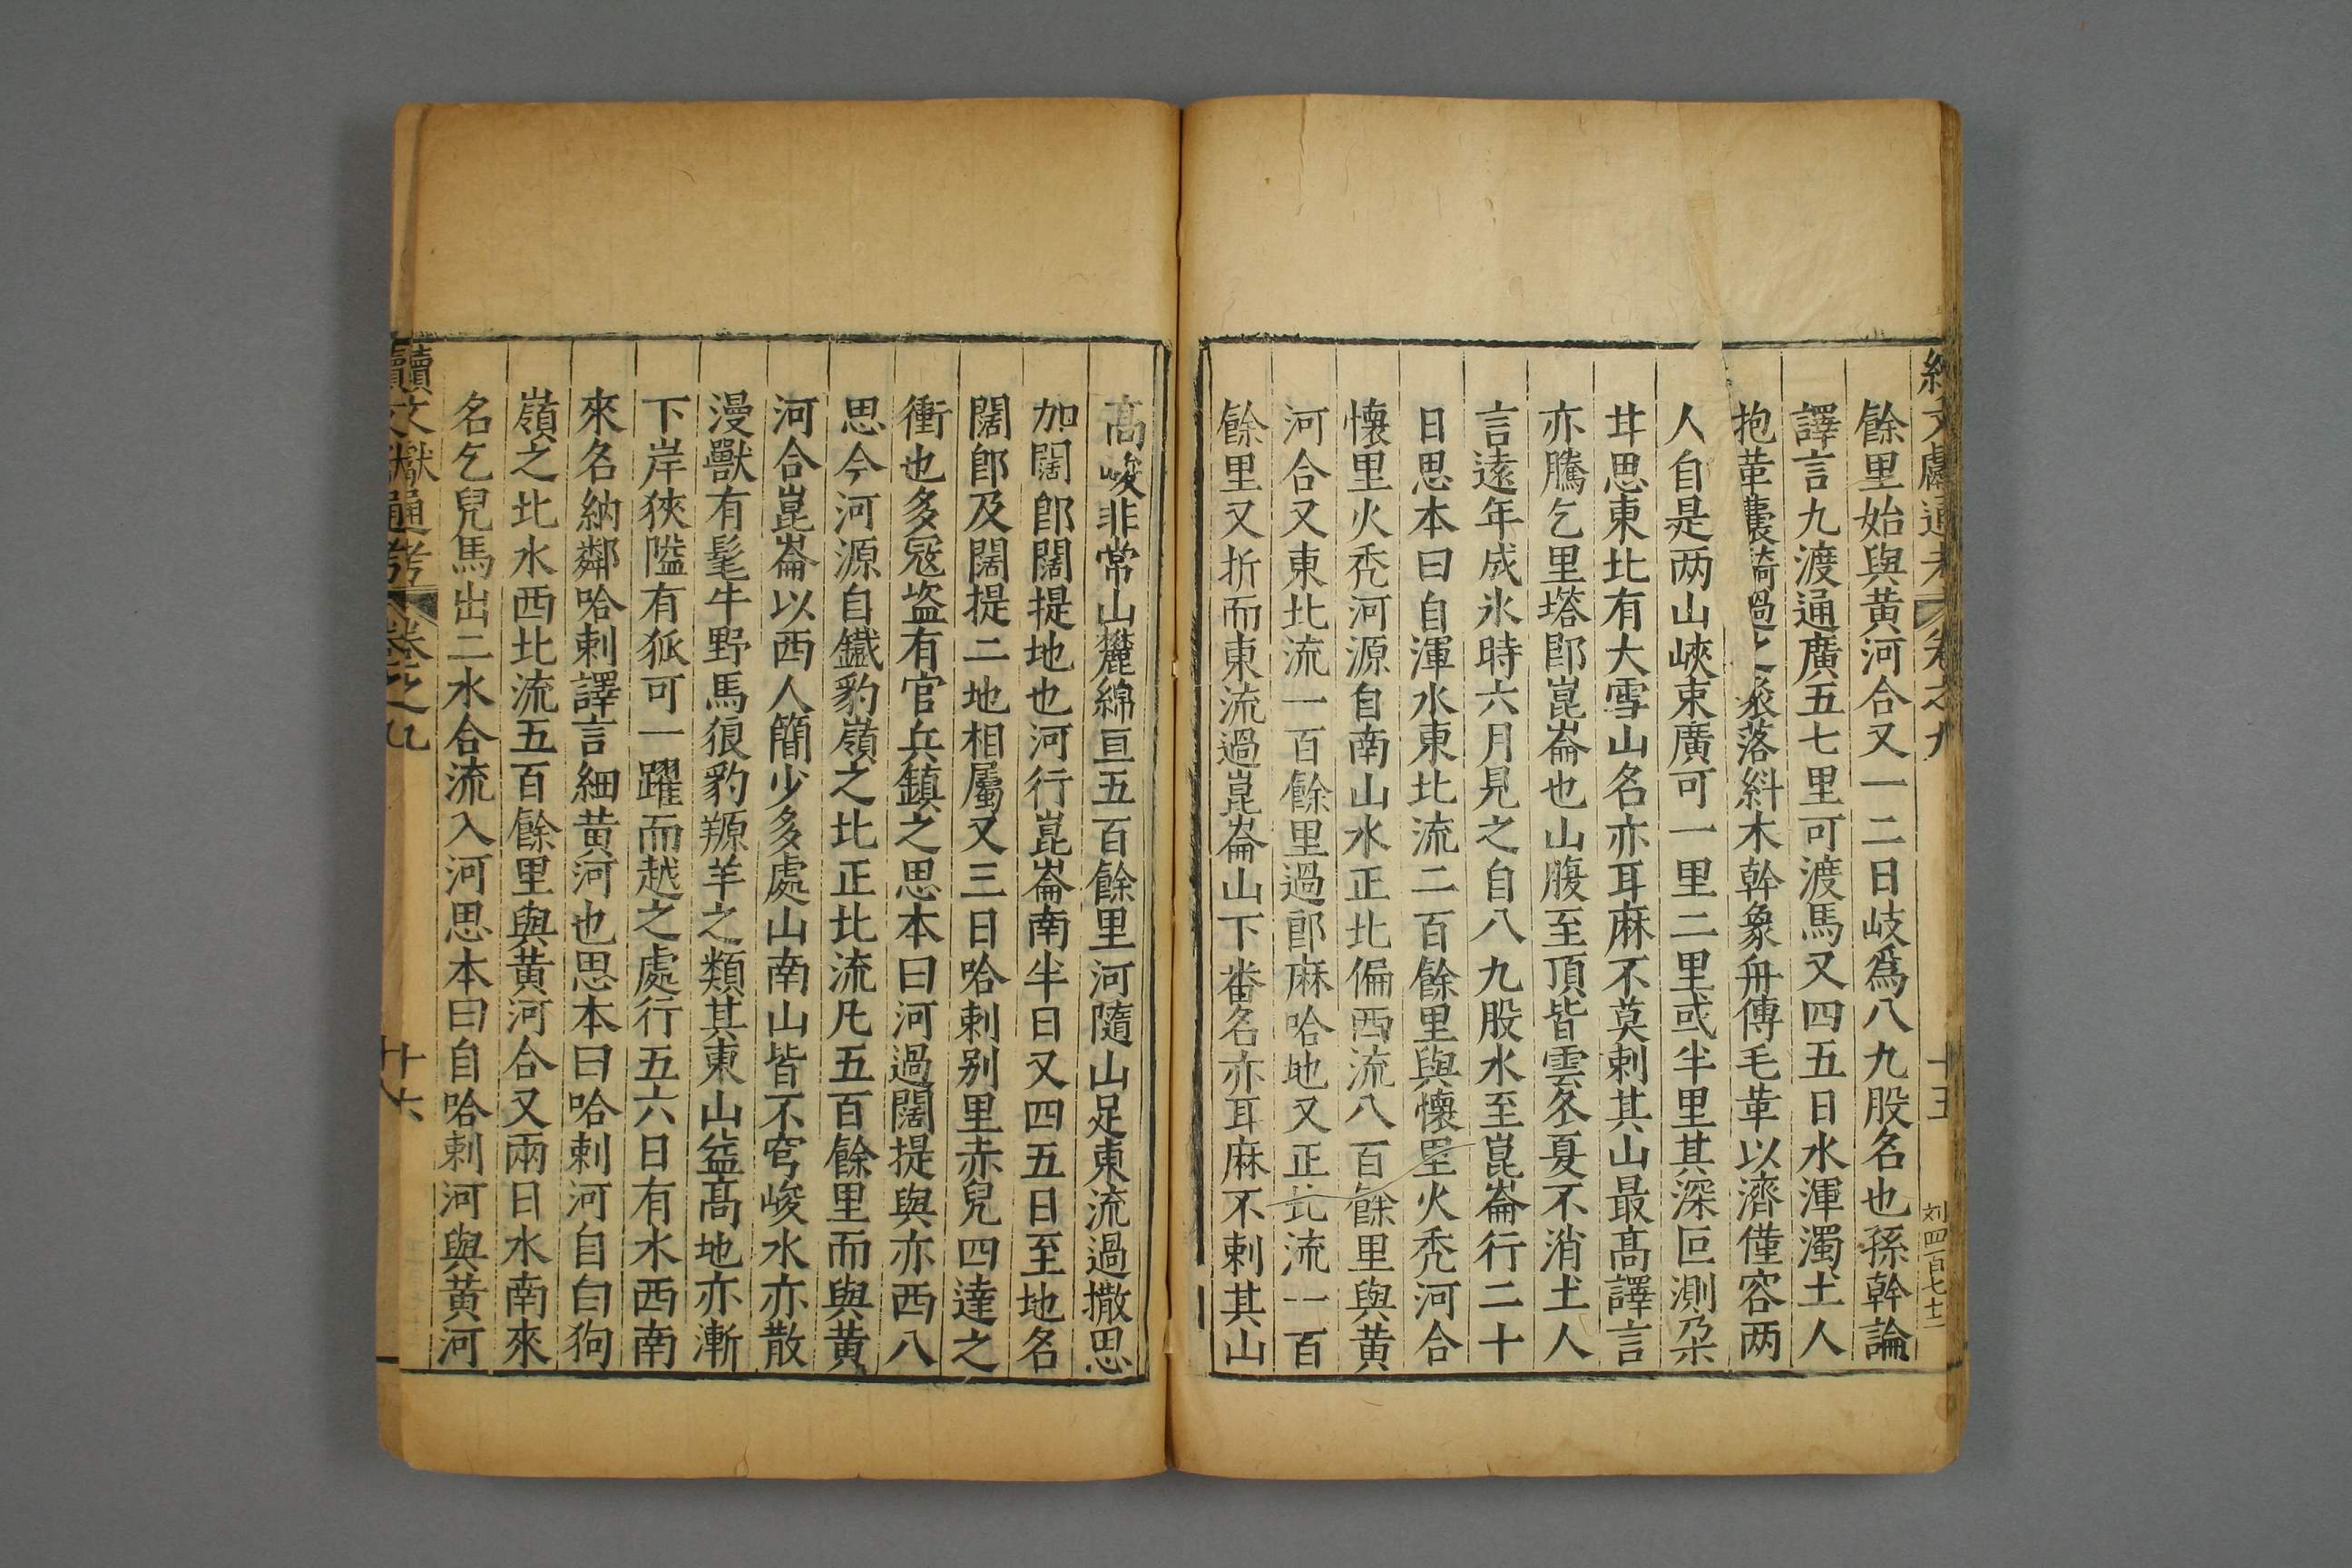 續文獻通考 卷之九 十五 刘四百七十二
餘里始與黄河合又一二日岐爲八九股名也孫斡論
譯言九渡通廣五七里可渡馬又四五日水渾濁土人
抱革囊騎過之衆落糾木幹象舟傳毛革以濟僅容两
人自是两山峽束廣可一里二里或半里其深叵測朶
甘思東北有大雪山名亦耳麻不莫剌其山最髙譯言
亦騰乞里塔郎崑崙也山腹至頂皆雪冬夏不消土人
言遠年成氷時六月見之自八九股水至崑崙行二十
日思本曰自渾水東北流二百餘里與懷里火秃河合
懷里火秃河源自南山水正北偏西流八百餘里與黄
河合又東北流一百餘里過郎麻哈地又正北流一百
餘里又折而東流過崑崙山下番名亦耳麻不剌其山
髙峻非常山麓綿亘五百餘里河隨山足東流過撒思
加闊郎闊提地也河行崑崙南半日又四五日至地名
闊郎及闊提二地相屬又三日哈剌别里赤兒四達之
衝也多寇盗有官兵鎮之思本曰河過闊提與亦西八
思今河源自鐵豹嶺之北正北流凡五百餘里而與黄
河合崑崙以西人簡少多處山南山皆不穹峻水亦散
漫獸有髦牛野馬狼豹羱羊之類其東山益髙地亦漸
下岸狹隘有狐可一躍而越之處行五六日有水西南
來名納鄰哈剌譯言細黄河也思本曰哈剌河自白狗
嶺之北水西北流五百餘里與黄河合又兩日水南來
名乞兒馬出二水合流入河思本曰自哈剌河與黄河
續文獻通考 卷之九 十六